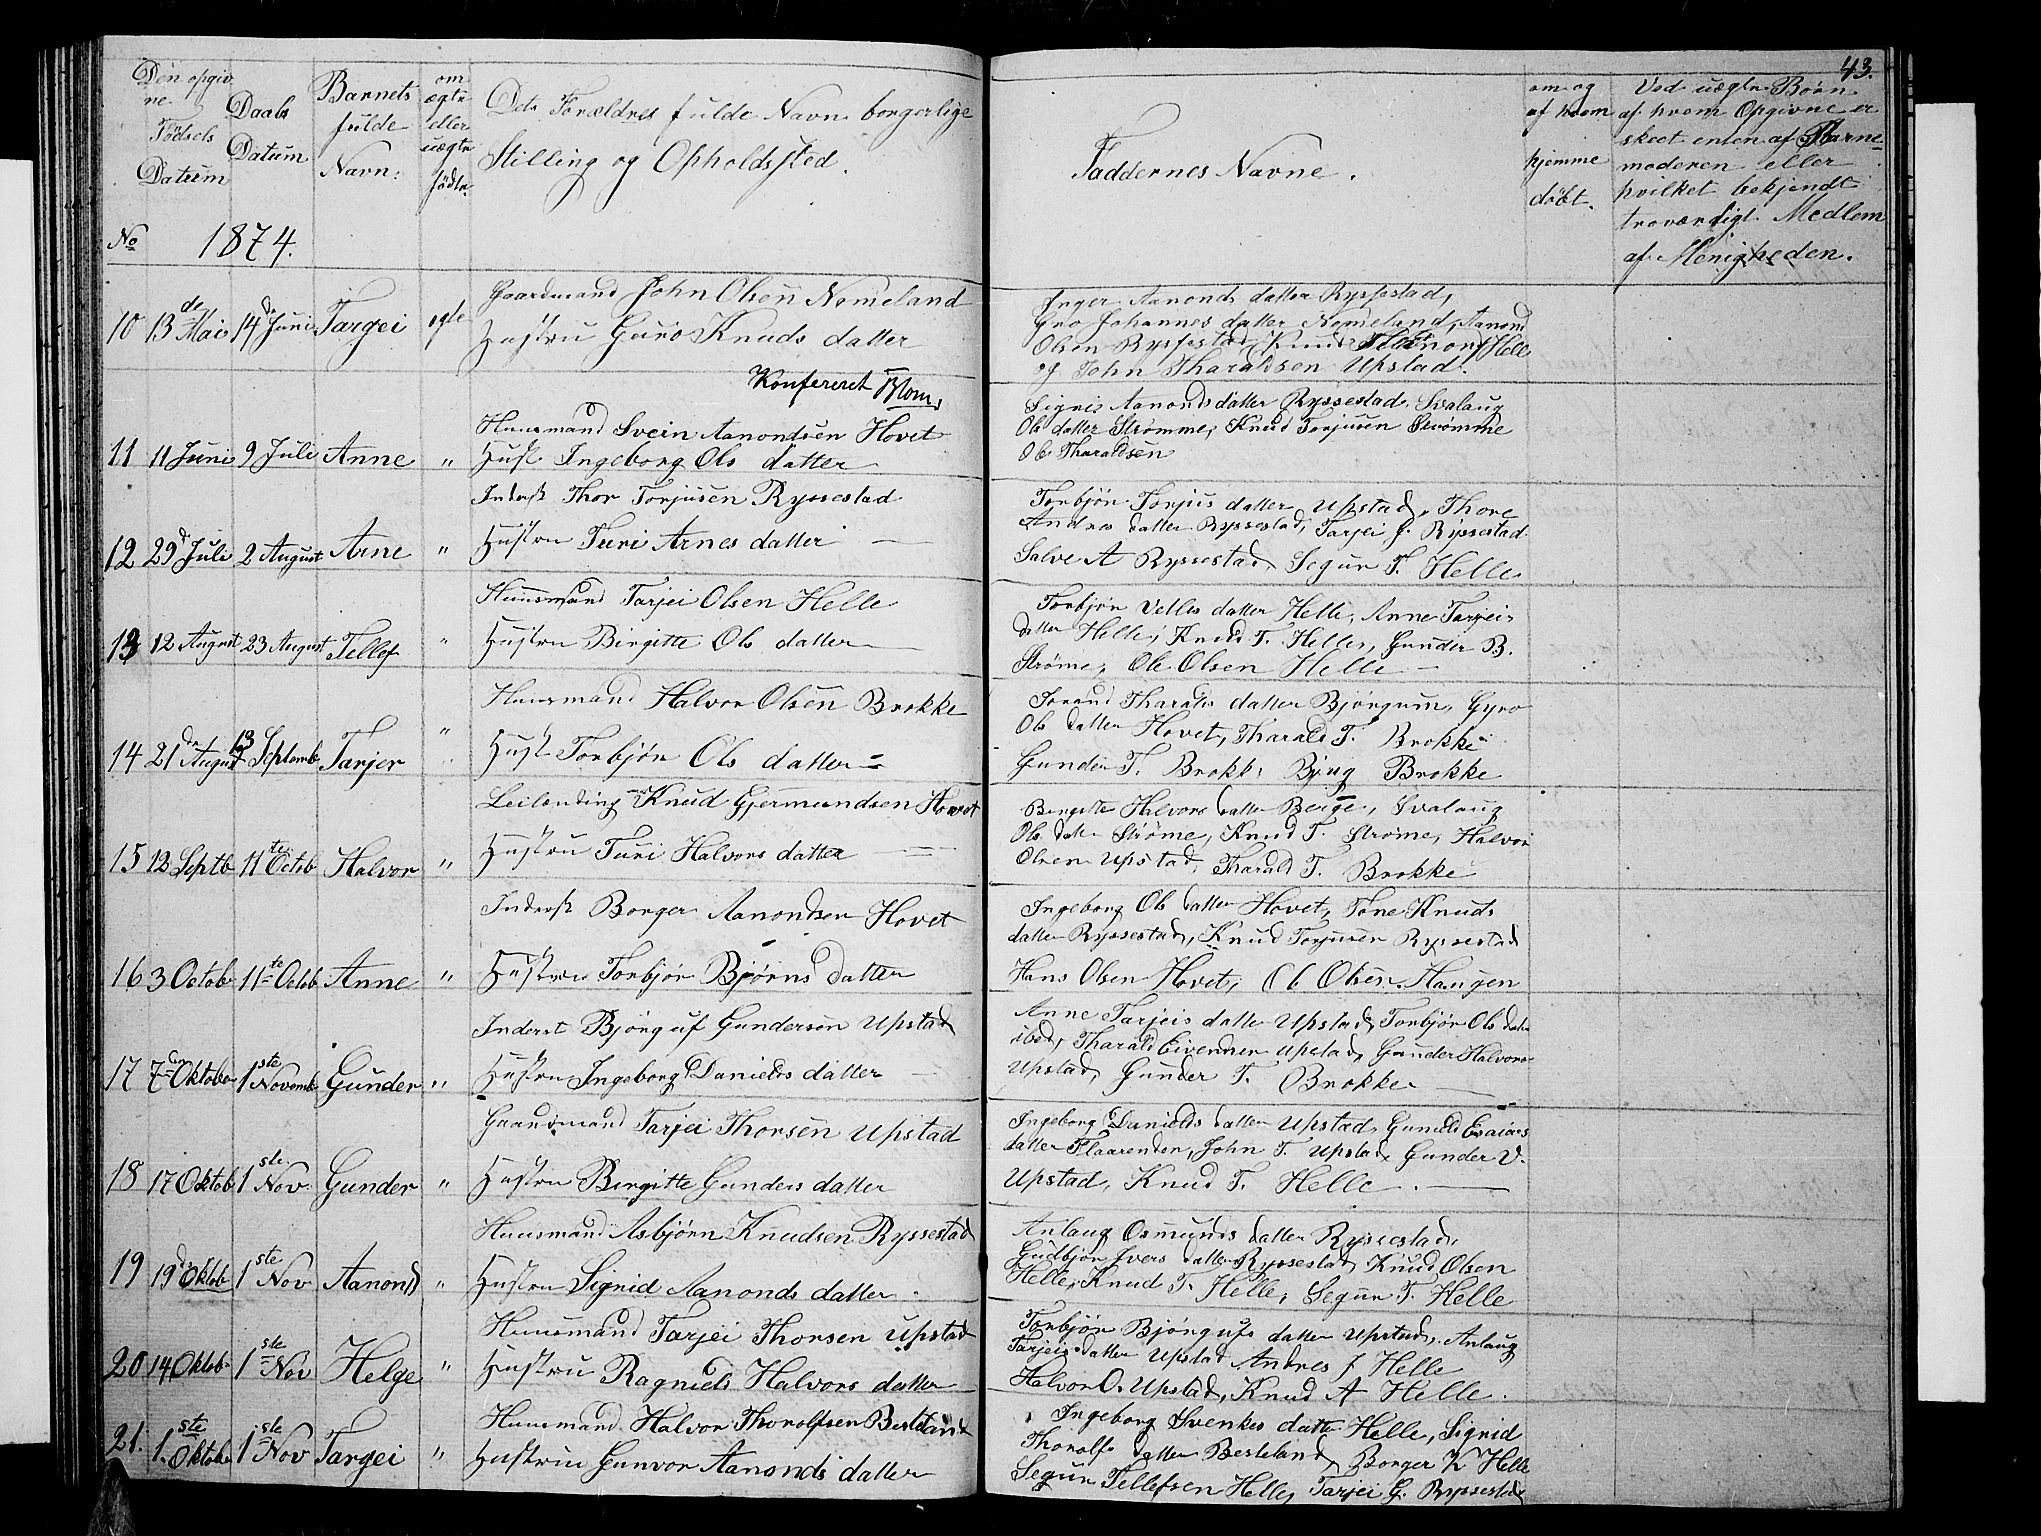 43.
Den opgivne Födsels Datum
Daabs Datum
Barnets fulde Navn:
om ægte eller uægte födte.
Dets Forældres fulde Navn borgerlige Stilling og Opholdssted.
Faddernes Navne.
om og af hvem hjemme döbt.
Ved uægte Börn af hvem Opgivne er skeet enten af Barnemoderen eller hvilket bekjendt troværdigt Medlem af Menigheden.
No 1874.
10 13de Mai 14de Juni Targei egte
Gaardmand John Olsen Nomeland
Hustru Guro Knuds datter
Inger Aanonds datter Ryssestad,
Gro Johannes datter Nomeland, Aanond
Olsen Ryssestad, Knud Helle
og John Tharaldsen Upstad.
Konfereret Blom,
11 11 Juni 9 Juli Anne "
Huusmand Svein Aanondsen Hovet
Hust Ingeborg Ols datter
Signe Aanonds datter Ryssestad, Svalaug
Ols datter Strömme, Knud Torjusen Strömme
Ole Tharaldsen
12 29d Juli 2 August Arne "
Inderst Thor Torjusen Ryssestad
Hustru Turi Arnes datter —
Torbjör Torjus datter Upstad, Thore
Andres datter Ryssestad, Tarjei J. Ryssestad
Salve A Ryssestad Segur T. Helle
13 12 August 23 August Tellef "
Huusmand Tarjei Olsen Helle
Hustru Birgitte Ols datter —
Torbjör Vetles datter Helle, Anne Tarjeis
datter Helle, Knud T. Helle, Gunder B.
Ströme, Ole Olsen Helle —
14 21de August 13 Septemb Tarjer "
Huusmand Halvor Olsen Brokke
Hust Torbjör Ols datter =
Jorand Tharalds datter Björgum, Gyro
Ols datter Hovet, Tharald T. Brokke
Gunder T. Brokke Bjug Brokke
15 12 Septb 11te Octob Halvor "
Leilending Knud Gjermundsen Hovet
Hustru Turi Halvors datter =
Birgitte Halvors datter Berge, Svalaug
Ols datter Ströme, Knud T. Ströme, Halvor
Olsen Upstad, Tharald T. Brokke
16 3 Octob 11te Octob Anne "
Inderst Borger Aanondsen Hovet
Hustru Torbjör Björns datter
Ingeborg Ols datter Hovet, Tone Knuds
datter Ryssestad, Knud Torjusen Ryssestad
Hans Olsen Hovet, Ole Olsen Haugen
17 7den Oktober 1ste Novemb Gunder "
Inderst Björguf Gundersen Upstad
Hustru Ingeborg Daniels datter
Anne Tarjeis datter Upstad, Torbjör Ols datter
ibid, Tharald Eivendsen Upstad, Gunder Halvors
Upstad, Gunder T. Brokke —
18 17 Oktob 1ste Nov Gunder "
Gaardmand Tarjei Thorsen Upstad
Hustru Birgitte Gunders datter
Ingeborg Daniels datter Upstad, Gunild Esaias
datter Flaarenden, John T. Upstad Gunder V.
Upstad, Knud T. Helle —
19 19de Oktob 1ste Nov Aanond "
Huusmand Asbjörn Knudsen Ryssestad
Hustru Sigrid Aanonds datter
Anlaug Osmunds datter Ryssestad,
Gudbjör Ivers datter Ryssestad, Knud Olsen
Helle, Knud T. Helle, Segur T. Helle
20 14 Oktob 1ste Nov Helge "
Huusmand Tarjei Thorsen Upstad
Hustru Ragnild Halvors datter
Torbjör Björgufs datter Upstad, Anlaug
Tarjeis datter Upstad Andres J Helle
Halvor O. Upstad, Knud A Helle.
21. 1.ste Oktober 1ste Nov Targei "
Huusmand Halvor Thorolfsen Besteland
Hustru Gunvor Aanonds datter
Ingeborg Svenkes datter Helle, Sigrid
Thorolfs datter Besteland, Borger K Helle
Segur Tellefsen Helle, Tarjei G. Ryssestad